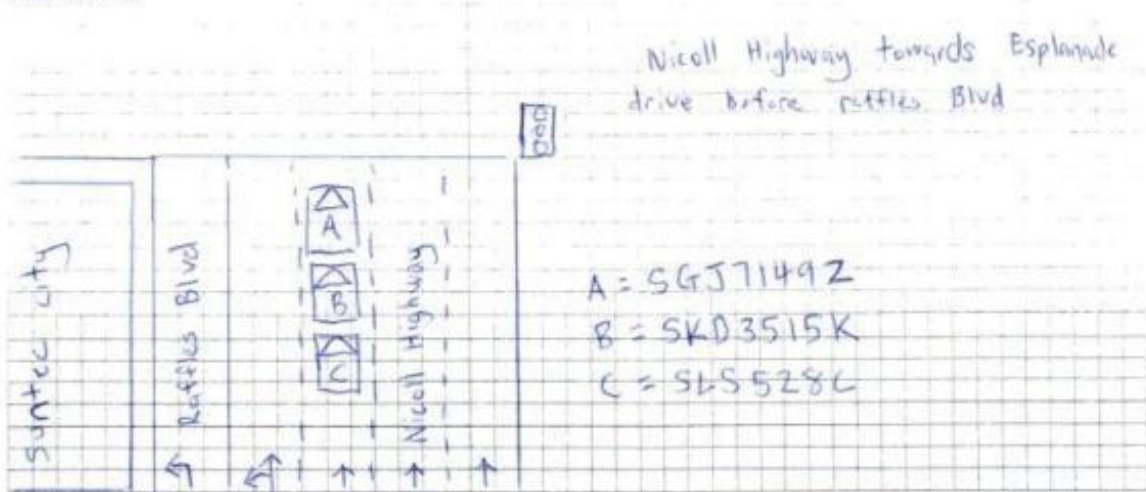 Nicoll Highway towards Esplanade
drive before raffles Blvd
Suntec city
Raffles Blvd
A
B
C
Nicoll Highway
A = SGJ7149Z
B = SKD3515K
C = SLS528C